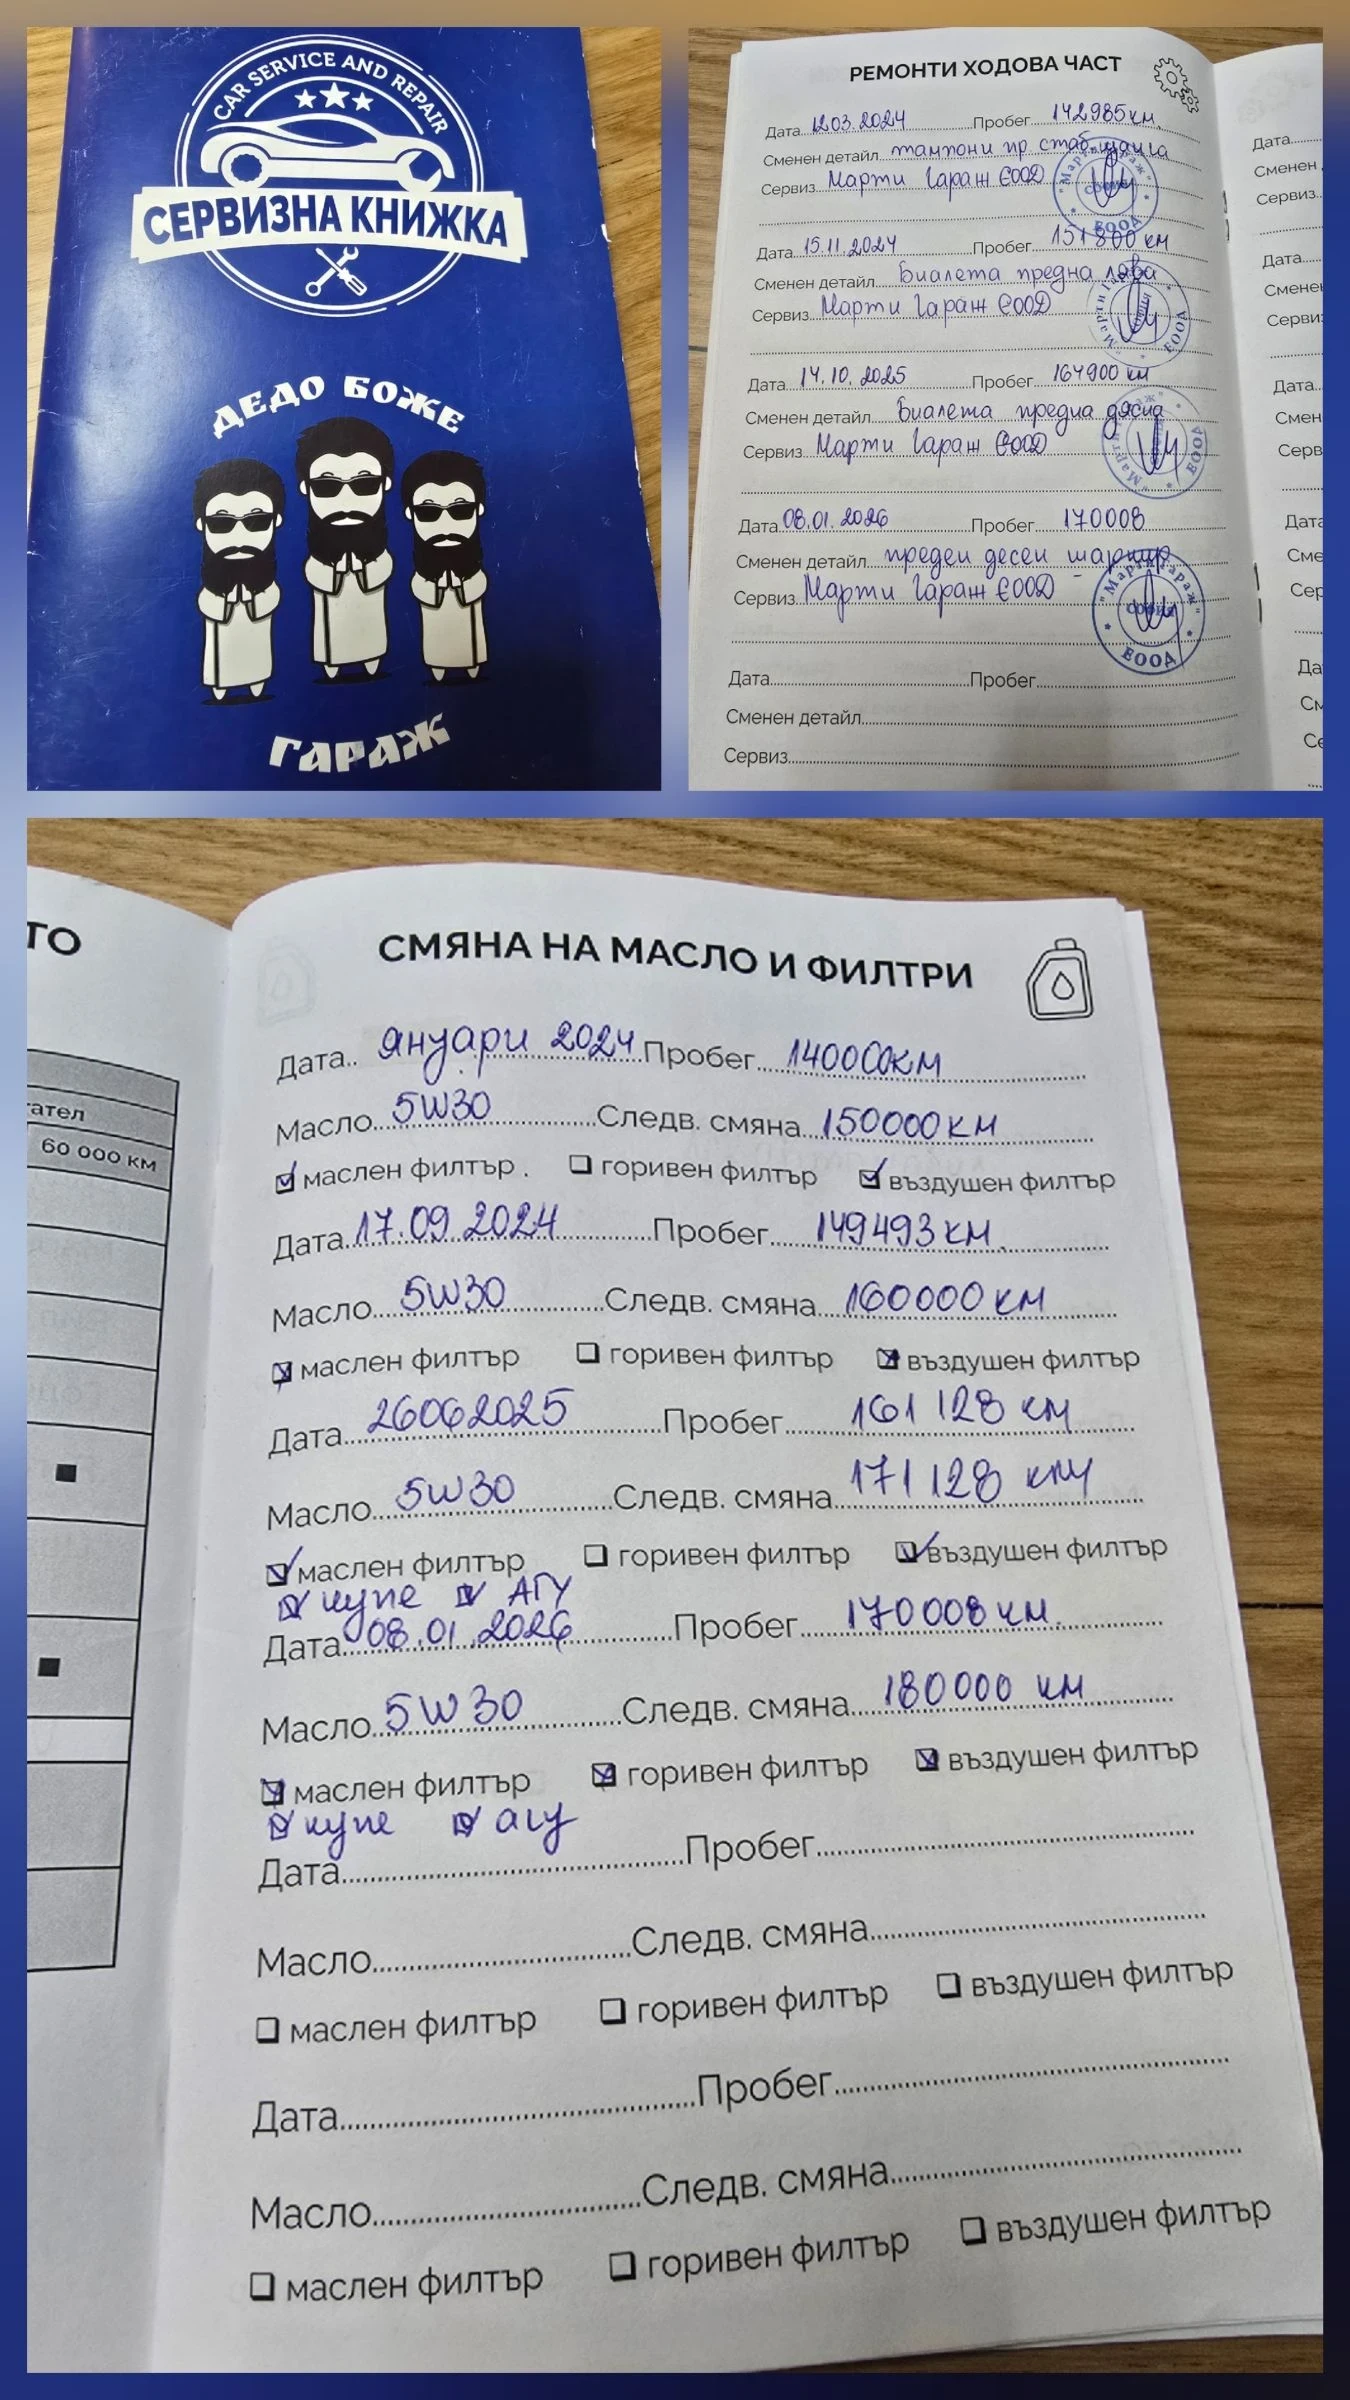 CAR SERVICE AND REPAIR
СЕРВИЗНА КНИЖКА
ДЕДО БОЖЕ
ГАРАЖ
РЕМОНТИ ХОДОВА ЧАСТ
Дата 12.03.2024 Пробег 142985км.
Сменен детайл тампони пр стаб. щанга
Сервиз Марти Гараж ЕООД
Дата 15.11.2024 Пробег 151800 км
Сменен детайл Биалета предна лява
Сервиз Марти Гараж ЕООД
Дата 14.10.2025 Пробег 164900 км
Сменен детайл Биалета предна дясна
Сервиз Марти Гараж ЕООД
Дата 08.01.2026 Пробег 170008
Сменен детайл преден десен шарнир
Сервиз Марти Гараж ЕООД
"Марти Гараж" София ЕООД
Дата Пробег
Сменен детайл
Сервиз
ТО
60 000 км
СМЯНА НА МАСЛО И ФИЛТРИ
Дата.. януари 2024 Пробег 140000км
Масло 5W30 Следв. смяна 150000 км
маслен филтър горивен филтър въздушен филтър
Дата 17.09.2024 Пробег 149493 км
Масло 5W30 Следв. смяна 160000 км
маслен филтър горивен филтър въздушен филтър
Дата 26062025 Пробег 161128 км
Масло 5W30 Следв. смяна 171128 км
маслен филтър горивен филтър въздушен филтър
купе АГУ
Дата 08.01.2026 Пробег 170008 км.
Масло 5W30 Следв. смяна 180000 км
маслен филтър горивен филтър въздушен филтър
купе агу
Дата Пробег
Масло Следв. смяна
маслен филтър горивен филтър въздушен филтър
Дата Пробег
Масло Следв. смяна
маслен филтър горивен филтър въздушен филтър